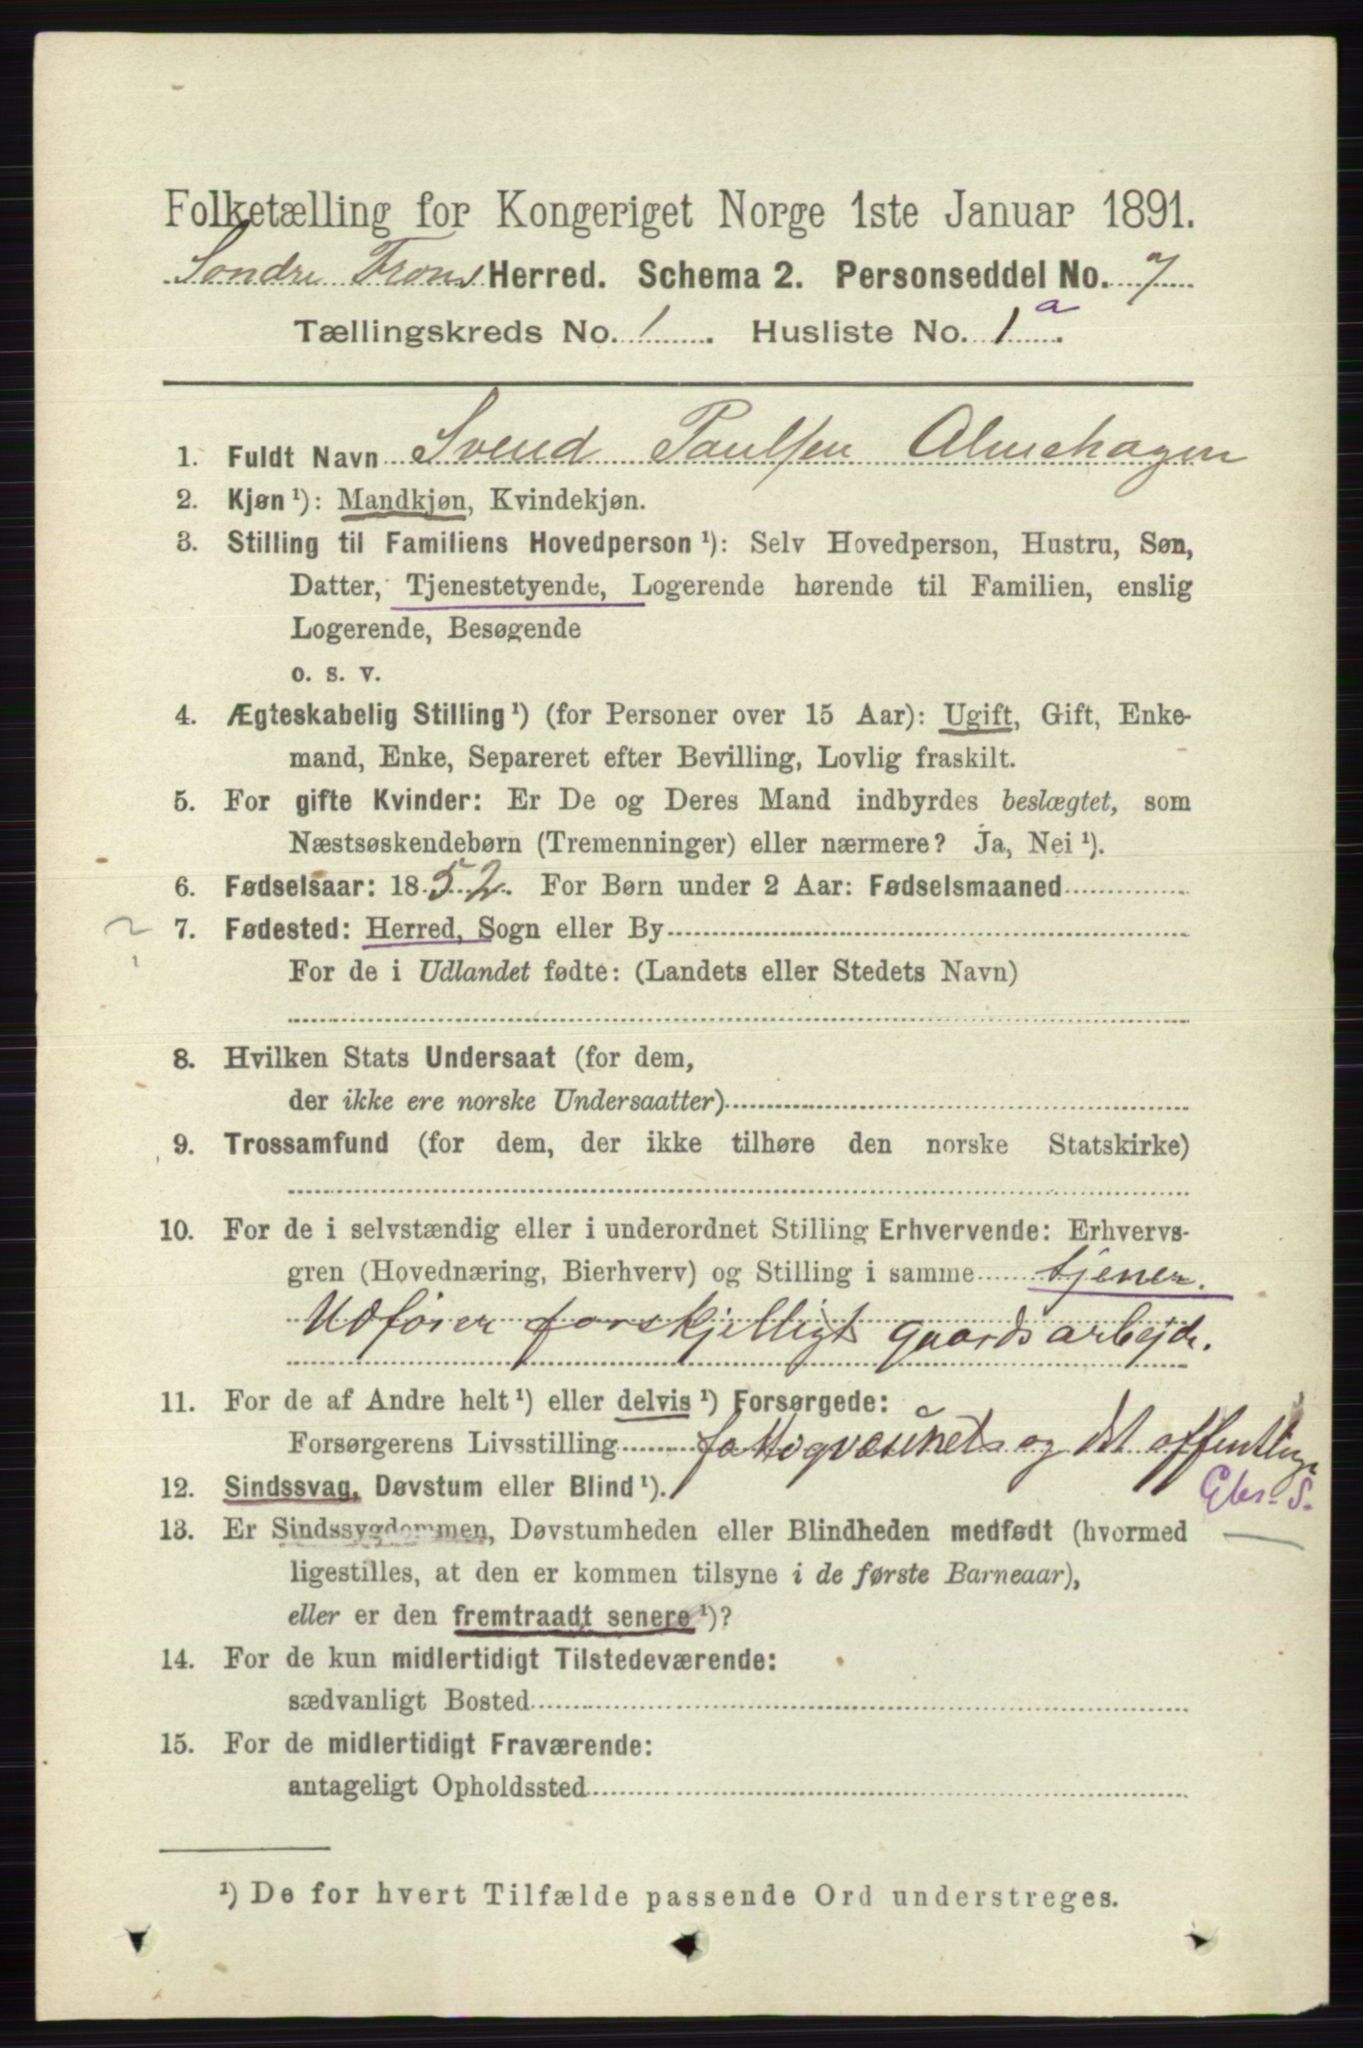 Folketælling for Kongeriget Norge 1ste Januar 1891.
Søndre Frons Herred. Schema 2. Personseddel No. 7
Tællingskreds No. 1. Husliste No. 1 a.
1. Fuldt Navn Svend Paulsen Almehagen
2. Kjøn ¹): Mandkjøn, Kvindekjøn.
3. Stilling til Familiens Hovedperson ¹): Selv Hovedperson, Hustru, Søn,
Datter, Tjenestetyende, Logerende hørende til Familien, enslig
Logerende, Besøgende
o. s. v.
4. Ægteskabelig Stilling ¹) (for Personer over 15 Aar): Ugift, Gift, Enke-
mand, Enke, Separeret efter Bevilling, Lovlig fraskilt.
5. For gifte Kvinder: Er De og Deres Mand indbyrdes beslægtet, som
Næstsøskendebørn (Tremenninger) eller nærmere? Ja, Nei ¹).
6. Fødselsaar: 1852. For Børn under 2 Aar: Fødselsmaaned
7. Fødested: Herred, Sogn eller By
For de i Udlandet fødte: (Landets eller Stedets Navn)
8. Hvilken Stats Undersaat (for dem,
der ikke ere norske Undersaatter)
9. Trossamfund (for dem, der ikke tilhøre den norske Statskirke)
10. For de i selvstændig eller i underordnet Stilling Erhvervende: Erhvervs-
gren (Hovednæring, Bierhverv) og Stilling i samme tjener.
Udfører forskjelligt gaardsarbejde.
11. For de af Andre helt ¹) eller delvis ¹) Forsørgede:
Forsørgerens Livsstilling fattigvæsenet og det offentlige
12. Sindssvag, Døvstum eller Blind ¹).
13. Er Sindssygdommen, Døvstumheden eller Blindheden medfødt (hvormed
ligestilles, at den er kommen tilsyne i de første Barneaar),
eller er den fremtraadt senere ¹)?
14. For de kun midlertidigt Tilstedeværende:
sædvanligt Bosted
15. For de midlertidigt Fraværende:
antageligt Opholdssted
¹) De for hvert Tilfælde passende Ord understreges.